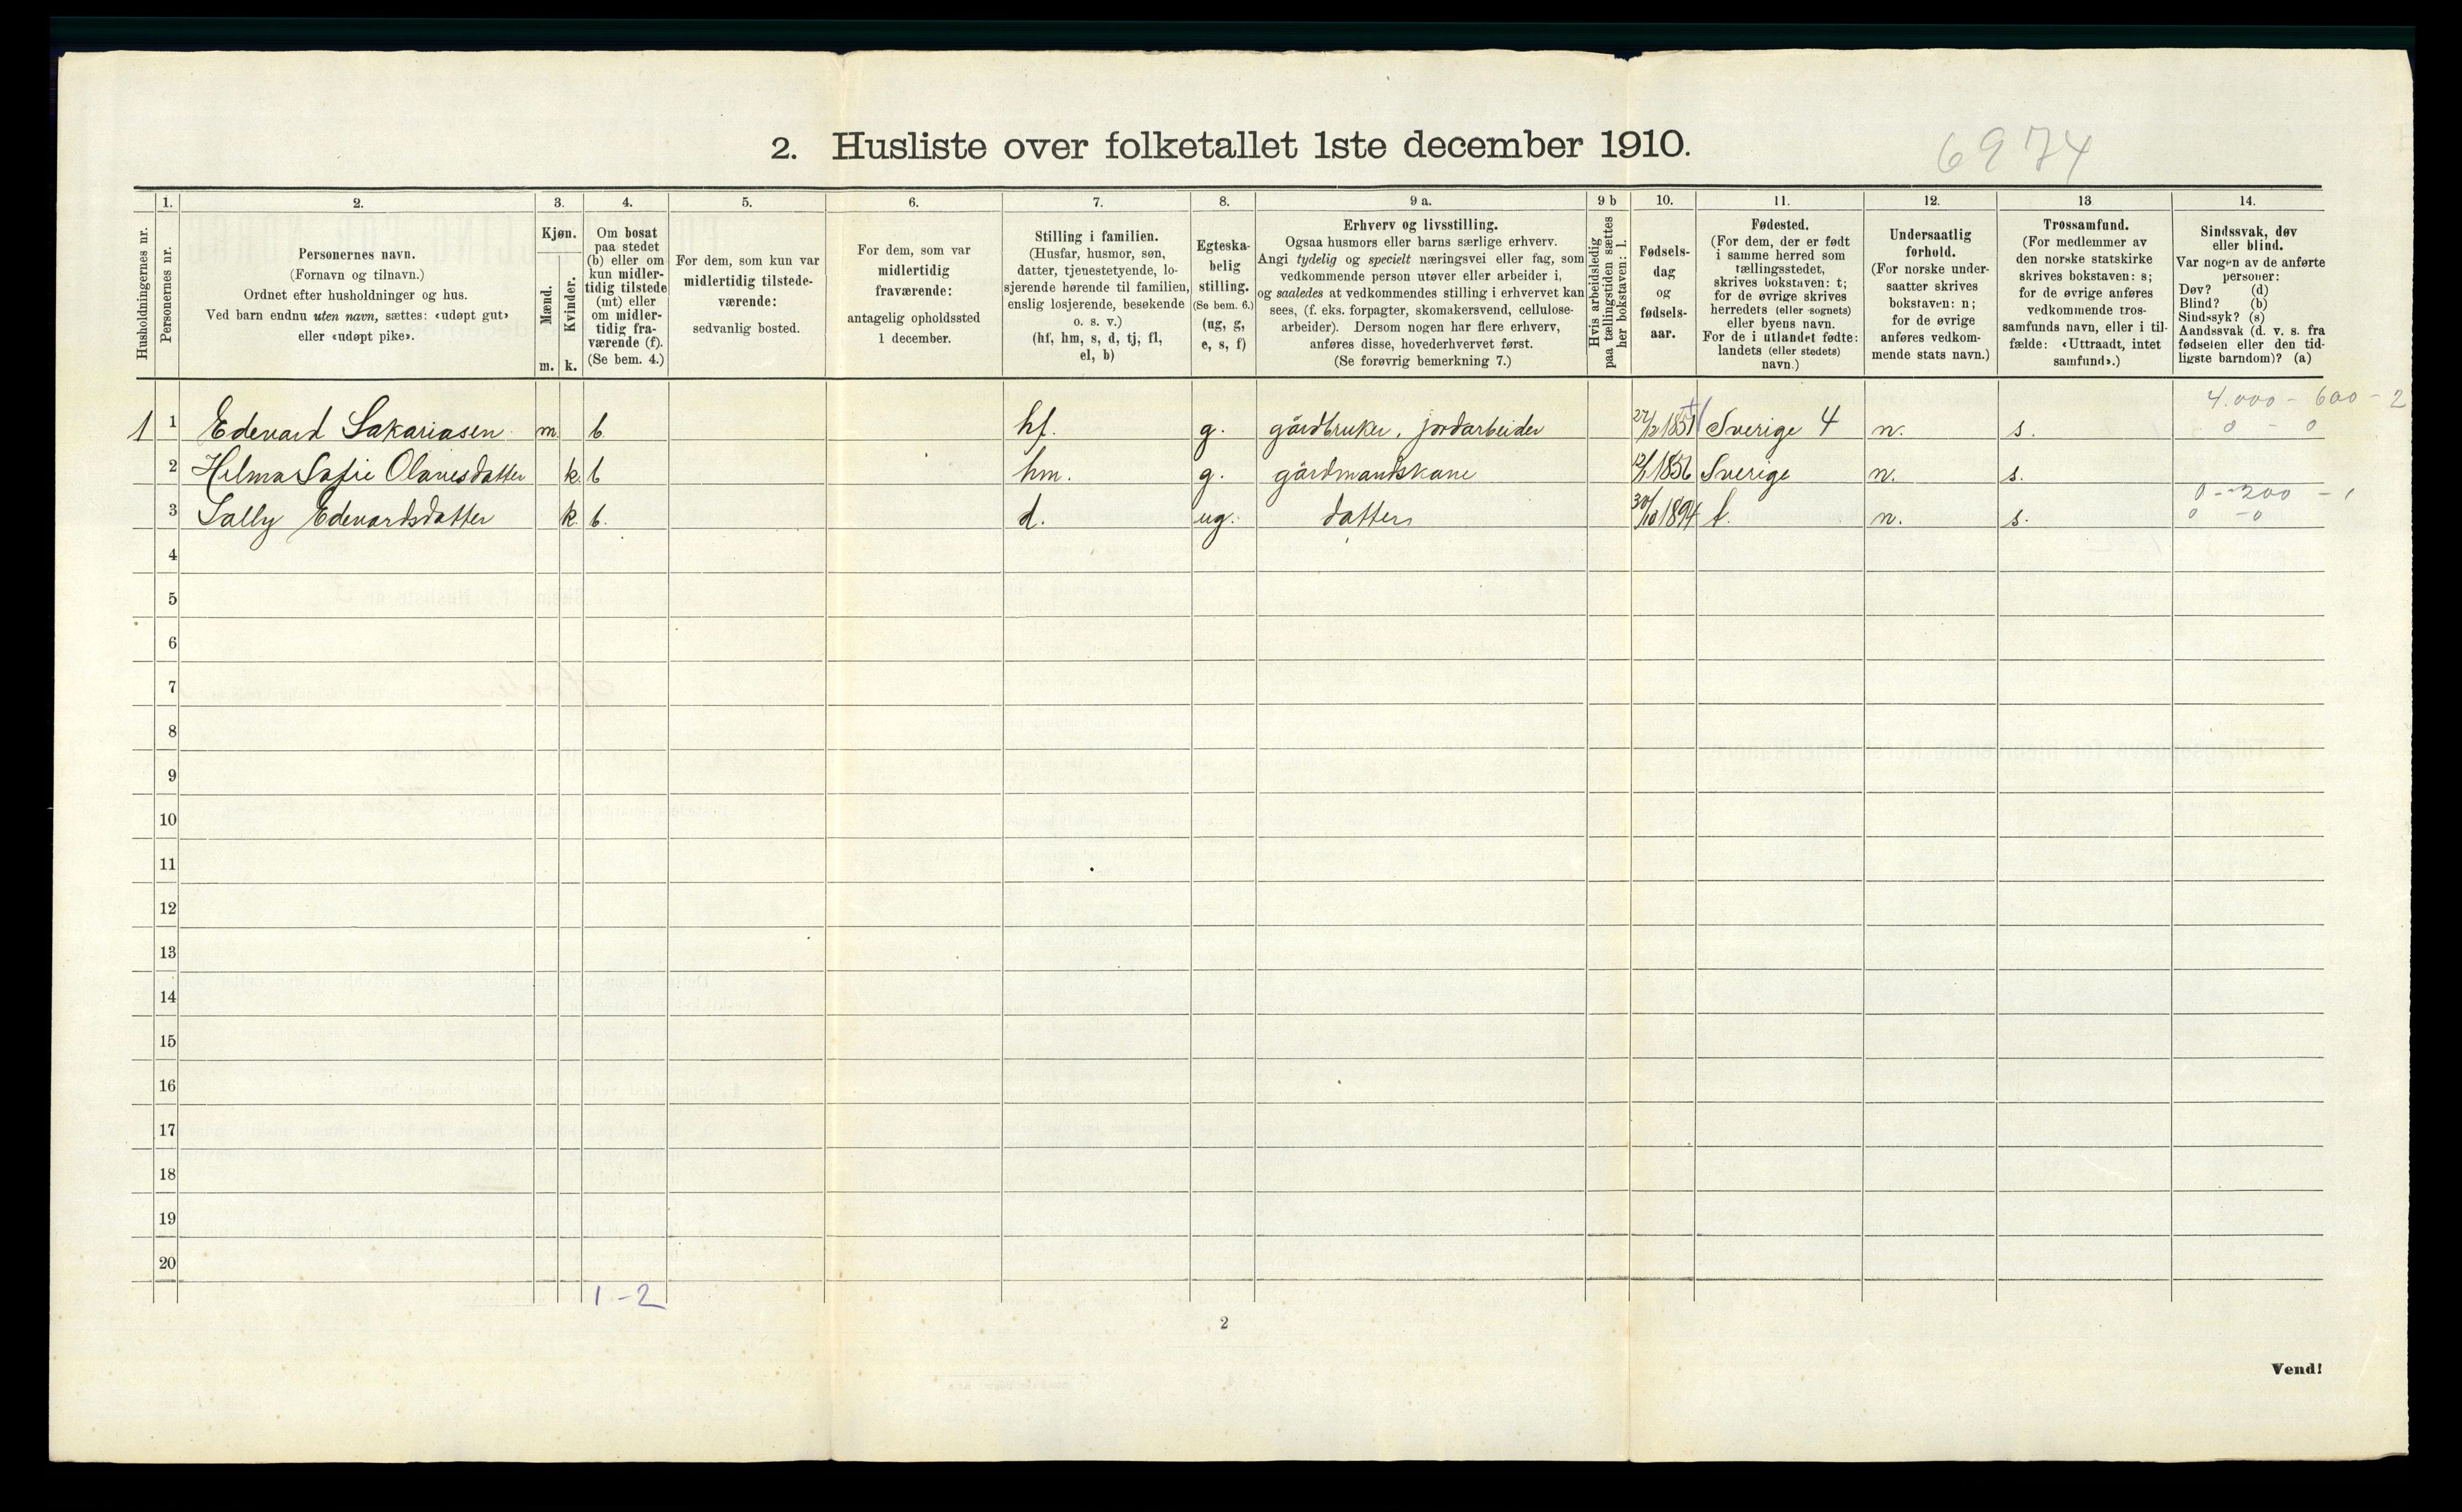 2. Husliste over folketallet 1ste december 1910.
6974
Husholdningernes nr.
1.
Personernes nr.
2.
Personernes navn.
(Fornavn og tilnavn.)
Ordnet efter husholdninger og hus.
Ved barn endnu uten navn, sættes: «udøpt gut»
eller «udøpt pike».
3.
Kjøn.
Mænd.
Kvinder.
m.
k.
4.
Om bosat
paa stedet
(b) eller om
kun midler-
tidig tilstede
(mt) eller
om midler-
tidig fra-
værende (f).
(Se bem. 4.)
5.
For dem, som kun var
midlertidig tilstede-
værende:
sedvanlig bosted.
6.
For dem, som var
midlertidig
fraværende:
antagelig opholdssted
1 december.
7.
Stilling i familien.
(Husfar, husmor, søn,
datter, tjenestetyende, lo-
sjerende hørende til familien,
enslig losjerende, besøkende
o. s. v.)
(hf, hm, s, d, tj, fl,
el, b)
8.
Egteska-
belig
stilling.
(Se bem. 6.)
(ug, g,
e, s, f)
9 a.
Erhverv og livsstilling.
Ogsaa husmors eller barns særlige erhverv.
Angi tydelig og specielt næringsvei eller fag, som
vedkommende person utøver eller arbeider i,
og saaledes at vedkommendes stilling i erhvervet kan
sees, (f. eks. forpagter, skomakersvend, cellulose-
arbeider). Dersom nogen har flere erhverv,
anføres disse, hovederhvervet først.
(Se forøvrig bemerkning 7.)
9 b
Hvis arbeidsledig
paa tællingstiden sættes
her bokstaven: l.
10.
Fødsels-
dag
og
fødsels-
aar.
11.
Fødested.
(For dem, der er født
i samme herred som
tællingsstedet,
skrives bokstaven: t;
for de øvrige skrives
herredets (eller sognets)
eller byens navn.
For de i utlandet fødte:
landets (eller stedets)
navn.)
12.
Undersaatlig
forhold.
(For norske under-
saatter skrives
bokstaven: n;
for de øvrige
anføres vedkom-
mende stats navn.)
13
Trossamfund.
(For medlemmer av
den norske statskirke
skrives bokstaven: s;
for de øvrige anføres
vedkommende tros-
samfunds navn, eller i til-
fælde: «Uttraadt, intet
samfund».)
14.
Sindssvak, døv
eller blind.
Var nogen av de anførte
personer:
Døv? (d)
Blind? (b)
Sindssyk? (s)
Aandssvak (d. v. s. fra
fødselen eller den tid-
ligste barndom)? (a)
4.000 - 600 - 2
1 1 Edevard Sakariasen m. b. hf. g. gårdbruker, jordarbeider 27/12 1851 Sverige 4 n. s. 0 - 0
2 Hilma Sofie Olavesdatter k. b hm. g. gårdmandskane 12/1 1856 Sverige n. s.
0 - 200 - 1
3 Sally Edevardsdatter k. b. d. ug. datter 30/10 1894 t. n. s. 0 - 0
4
5
6
7
8
9
10
11
12
13
14
15
16
17
18
19
20
1 - 2
2
Vend!